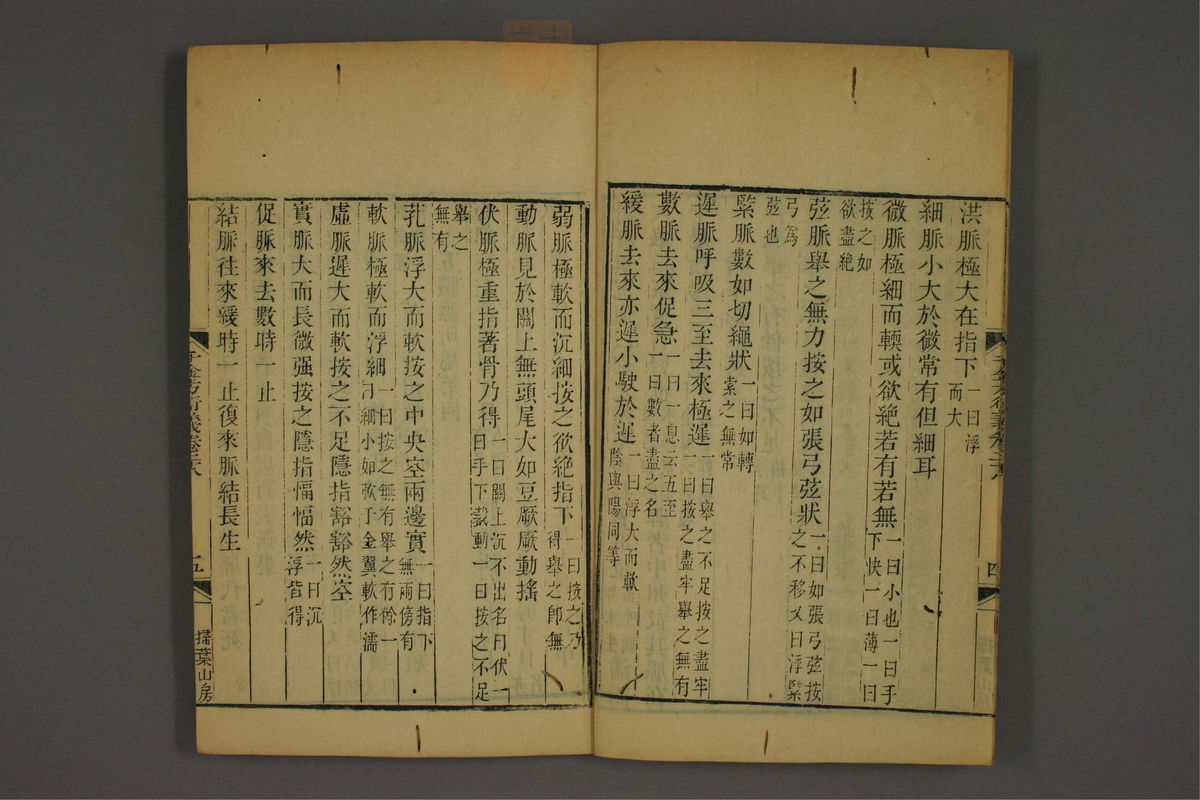 洪脈極大在指下一曰浮而大
細脈小大於微常有但細耳
微脈極細而輭或欲絶若有若無一曰小也一曰手下快一曰薄一曰
按之如欲盡絶
弦脈舉之無力按之如張弓弦狀一曰如張弓弦按之不移又曰浮緊
弓為弦也
緊脈數如切繩狀一曰如轉索之無常
遲脈呼吸三至去來極遲一曰舉之不足按之盡牢一曰按之盡牢舉之無有
數脈去來促急一曰一息六五至一曰數者盡之名
緩脈去來亦遲小駛於遲一曰浮大而軟陰與陽同等
弱脈極軟而沉細按之欲絶指下一曰按之乃得舉之即無
動脈見於關上無頭尾大如豆厥厥動搖
伏脈極重指著骨乃得一曰關上沉不出名曰伏一曰手下動一曰按之不足
舉之無有
芤脈浮大而軟按之中央空兩邊實一曰指下無兩傍有
軟脈極軟而浮細一曰按之無有舉之有餘一曰細小如軟千金翼軟作濡
虛脈遲大而軟按之不足隱指豁豁然空
實脈大而長微强按之隱指愊愊然一曰沉浮皆得
促脈來去數時一止
結脈往來緩時一止復來脈結長生
千金方衍義卷二十八
五
掃葉山房